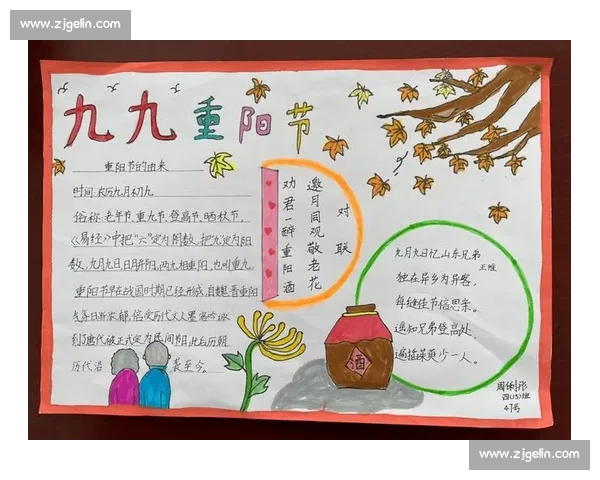 www.zjgelin.com
九九重阳节
重阳节的由来
时间:农历九月初九
俗称:老年节、重九节、登高节、晒秋节,
《易经》中把"六"定为阴数,把"九"定为阳
数,九月九日,日月并阳,两九相重阳,也叫重九。
重阳节早在战国时期已经形成,自魏晋重阳
到唐代被正式定为民间节阳,此后历朝
历代沿袭至今。
对联
邀月同观敬老花
劝君一醉重阳酒
九月九日忆山东兄弟
王维
独在异乡为异客,
每逢佳节倍思亲。
遥知兄弟登高处,
遍插茱萸少一人。
酒
四(15)班
47号
www.zjgelin.com